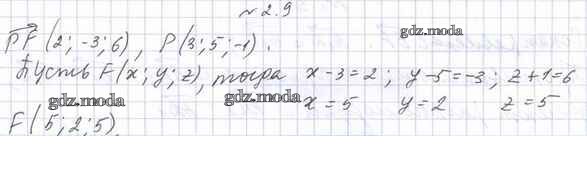 № 2.9
PF (2; -3; 6), P(3; 5; -1).
gdz.moda
Пусть F(x; y; z), тогда x-3=2; y-5=-3; z+1=6
gdz.moda gdz.moda
x=5 y=2 z=5
F(5; 2; 5)